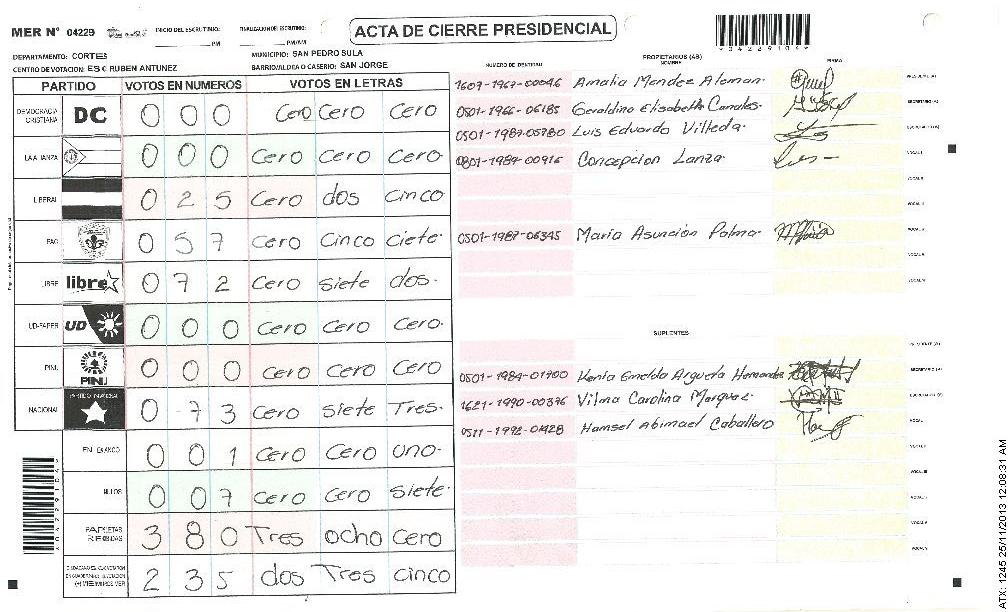 MER Nº 04229 INICIO DEL ESCRUTINIO: PM FINALIZACION DEL ESCRUTINIO: PM/AM
ACTA DE CIERRE PRESIDENCIAL
04229106
DEPARTAMENTO: CORTES MUNICIPIO: SAN PEDRO SULA
CENTRO DE VOTACION: ESC RUBEN ANTUNEZ BARRIO/ALDEA O CASERIO: SAN JORGE
PARTIDO VOTOS EN NUMEROS VOTOS EN LETRAS
DEMOCRACIA CRISTIANA DC 0 0 0 Cero Cero Cero
LA ALIANZA 0 0 0 Cero Cero Cero
LIBERAL 0 2 5 Cero dos cinco
PAC 0 5 7 Cero Cinco Ciete
LIBRE libre 0 7 2 Cero siete dos
UD-FAPER UD 0 0 0 Cero Cero Cero
PINU PINU 0 0 0 Cero Cero Cero
NACIONAL PARTIDO NACIONAL 0 7 3 Cero siete Tres
EN BLANCO 0 0 1 Cero Cero uno
NULOS 0 0 7 Cero Cero siete
PAPELETAS RECIBIDAS 3 8 0 Tres ocho Cero
2 3 5 dos Tres cinco
NUMERO DE IDENTIDAD PROPIETARIOS (AS) NOMBRE FIRMA
1607-1967-00046 Amalia Mendez Aleman. PRESIDENTE (A)
0501-1966-06185 Geraldina Elisabeth Canales. SECRETARIO (A)
0501-1987-05780 Luis Eduardo Villeda. ESCRUTADOR (A)
0801-1989-00916 Concepcion Lanza. VOCAL I
VOCAL II
VOCAL III
0501-1987-06345 Maria Asuncion Palma. VOCAL IV
VOCAL V
VOCAL VI
SUPLENTES
PRESIDENTE (A)
0501-1984-01700 Kenia Emelda Argueta Hernandez SECRETARIO (A)
1621-1990-00376 Vilma Carolina Marquez. ESCRUTADOR (A)
0511-1992-01428 Hamsel Abimael Caballero VOCAL I
VOCAL II
VOCAL III
VOCAL IV
VOCAL V
VOCAL VI
ATX: 1245 25/11/2013 12:08:31 AM